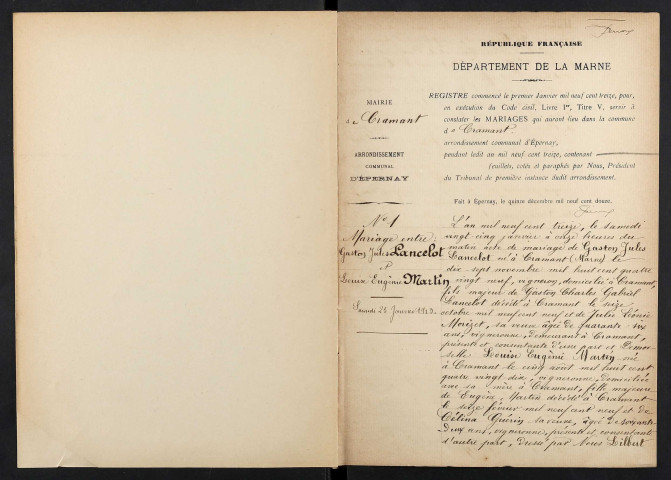 RÉPUBLIQUE FRANÇAISE
DÉPARTEMENT DE LA MARNE
MAIRIE
de Cramant
ARRONDISSEMENT
COMMUNAL
D'ÉPERNAY
REGISTRE commencé le premier Janvier mil neuf cent treize, pour,
en exécution du Code civil, Livre Ier, Titre V, servir à
constater les MARIAGES qui auront lieu dans la commune
de Cramant.
arrondissement communal d'Epernay,
pendant ledit an mil neuf cent treize, contenant
feuillets, cotés et paraphés par Nous, Président
du Tribunal de première instance dudit arrondissement.
Fait à Epernay, le quinze décembre mil neuf cent douze.
No 1
Mariage entre
Gaston Jules Lancelot
et
Louise Eugénie Martin
Samedi 25 Janvier 1913.
L'an mil neuf cent treize, le samedi
vingt cinq janvier à onze heures du
matin acte de mariage de Gaston Jules
Lancelot né à Cramant (Marne) le
dix sept novembre mil huit cent quatre
vingt neuf, vigneron, domicilié à Cramant,
fils majeur de Gaston Charles Gabriel
Lancelot décédé à Cramant le seize
octobre mil neuf cent neuf et de Julie Léonie
Morizet, sa veuve âgée de quarante six
ans, vigneronne, demeurant à Cramant,
présente et consentante d'une part et Demoi-
selle Louise Eugénie Martin née
à Cramant le cinq août mil huit cent
quatre vingt dix, vigneronne, domiciliée
avec sa mère à Cramant, fille majeure
de Eugène Martin décédé à Cramant
le seize février mil neuf cent neuf et de
Célina Guérin sa veuve, âgée de soixante
deux ans, vigneronne, présente et consentante
d'autre part, dressé par Nous Lilbert